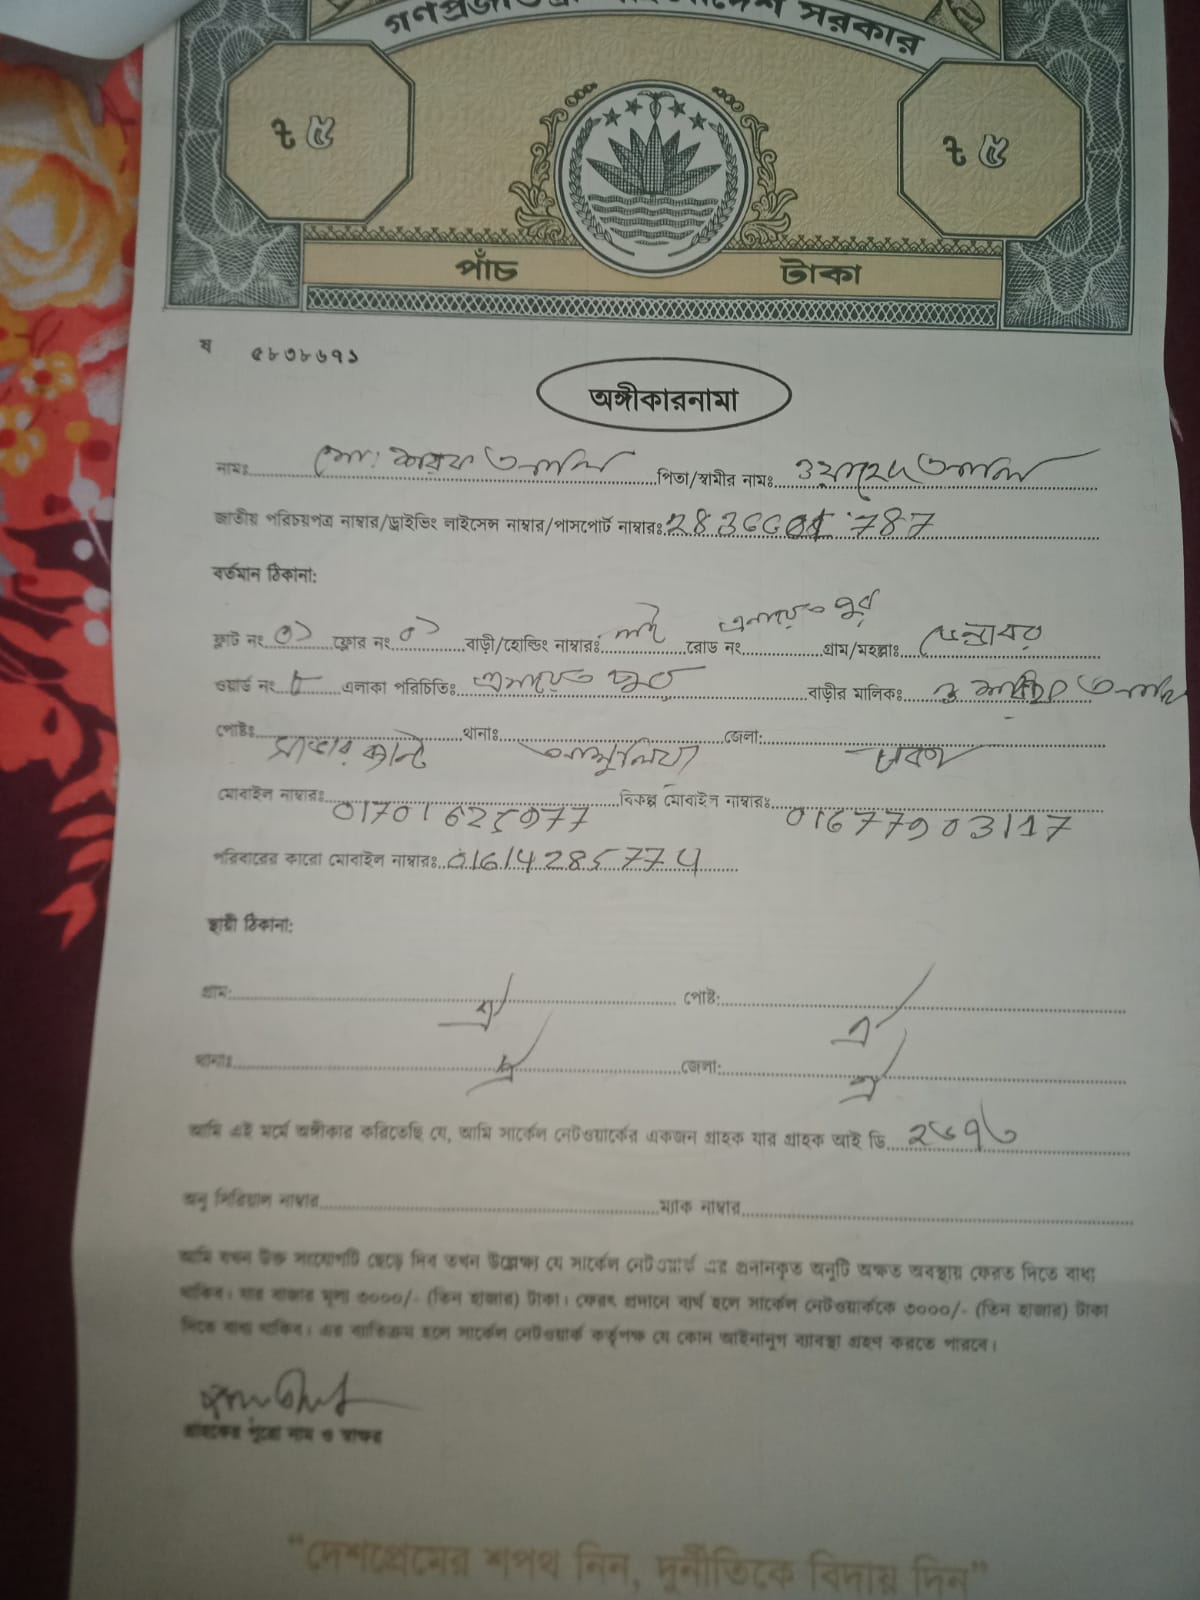 গণপ্রজাতন্ত্রী বাংলাদেশ সরকার
৳ ৫ ৳ ৫
পাঁচ টাকা
ষ ৫৮৩৮৬৭১
অঙ্গীকারনামা
নামঃ মোঃ আলি পিতা/স্বামীর নামঃ ওয়াহেদ আলি
জাতীয় পরিচয়পত্র নাম্বার/ড্রাইভিং লাইসেন্স নাম্বার/পাসপোর্ট নাম্বারঃ 787
বর্তমান ঠিকানা:
ফ্লাট নং ০১ ফ্লোর নং ০১ বাড়ী/হোল্ডিং নাম্বারঃ নাই রোড নং এনায়েতপুর গ্রাম/মহল্লাঃ
ওয়ার্ড নং ৮ এলাকা পরিচিতিঃ এনায়েতপুর বাড়ীর মালিকঃ আলি
পোষ্টঃ সাভার ক্যান্ট থানাঃ আশুলিয়া জেলা: ঢাকা
মোবাইল নাম্বারঃ বিকল্প মোবাইল নাম্বারঃ 01677903117
পরিবারের কারো মোবাইল নাম্বারঃ 01614285774
স্থায়ী ঠিকানা:
গ্রাম: ঐ পোষ্ট: ঐ
থানাঃ ঐ জেলা: ঐ
আমি এই মর্মে অঙ্গীকার করিতেছি যে, আমি সার্কেল নেটওয়ার্কের একজন গ্রাহক যার গ্রাহক আই ডি
অনু সিরিয়াল নাম্বার ম্যাক নাম্বার
আমি যখন উক্ত সংযোগটি ছেড়ে দিব তখন উল্লেক্ষ্য যে সার্কেল নেটওয়ার্ক এর প্রদানকৃত অনুটি অক্ষত অবস্থায় ফেরত দিতে বাধ্য
থাকিব। যার বাজার মূল্য ৩০০০/- (তিন হাজার) টাকা। ফেরৎ প্রদানে ব্যর্থ হলে সার্কেল নেটওয়ার্ককে ৩০০০/- (তিন হাজার) টাকা
দিতে বাধ্য থাকিব। এর ব্যতিক্রম হলে সার্কেল নেটওয়ার্ক কর্তৃপক্ষ যে কোন আইনানুগ ব্যাবস্থা গ্রহণ করতে পারবে।
গ্রাহকের পুরো নাম ও স্বাক্ষর
“দেশপ্রেমের শপথ নিন, দুর্নীতিকে বিদায় দিন”